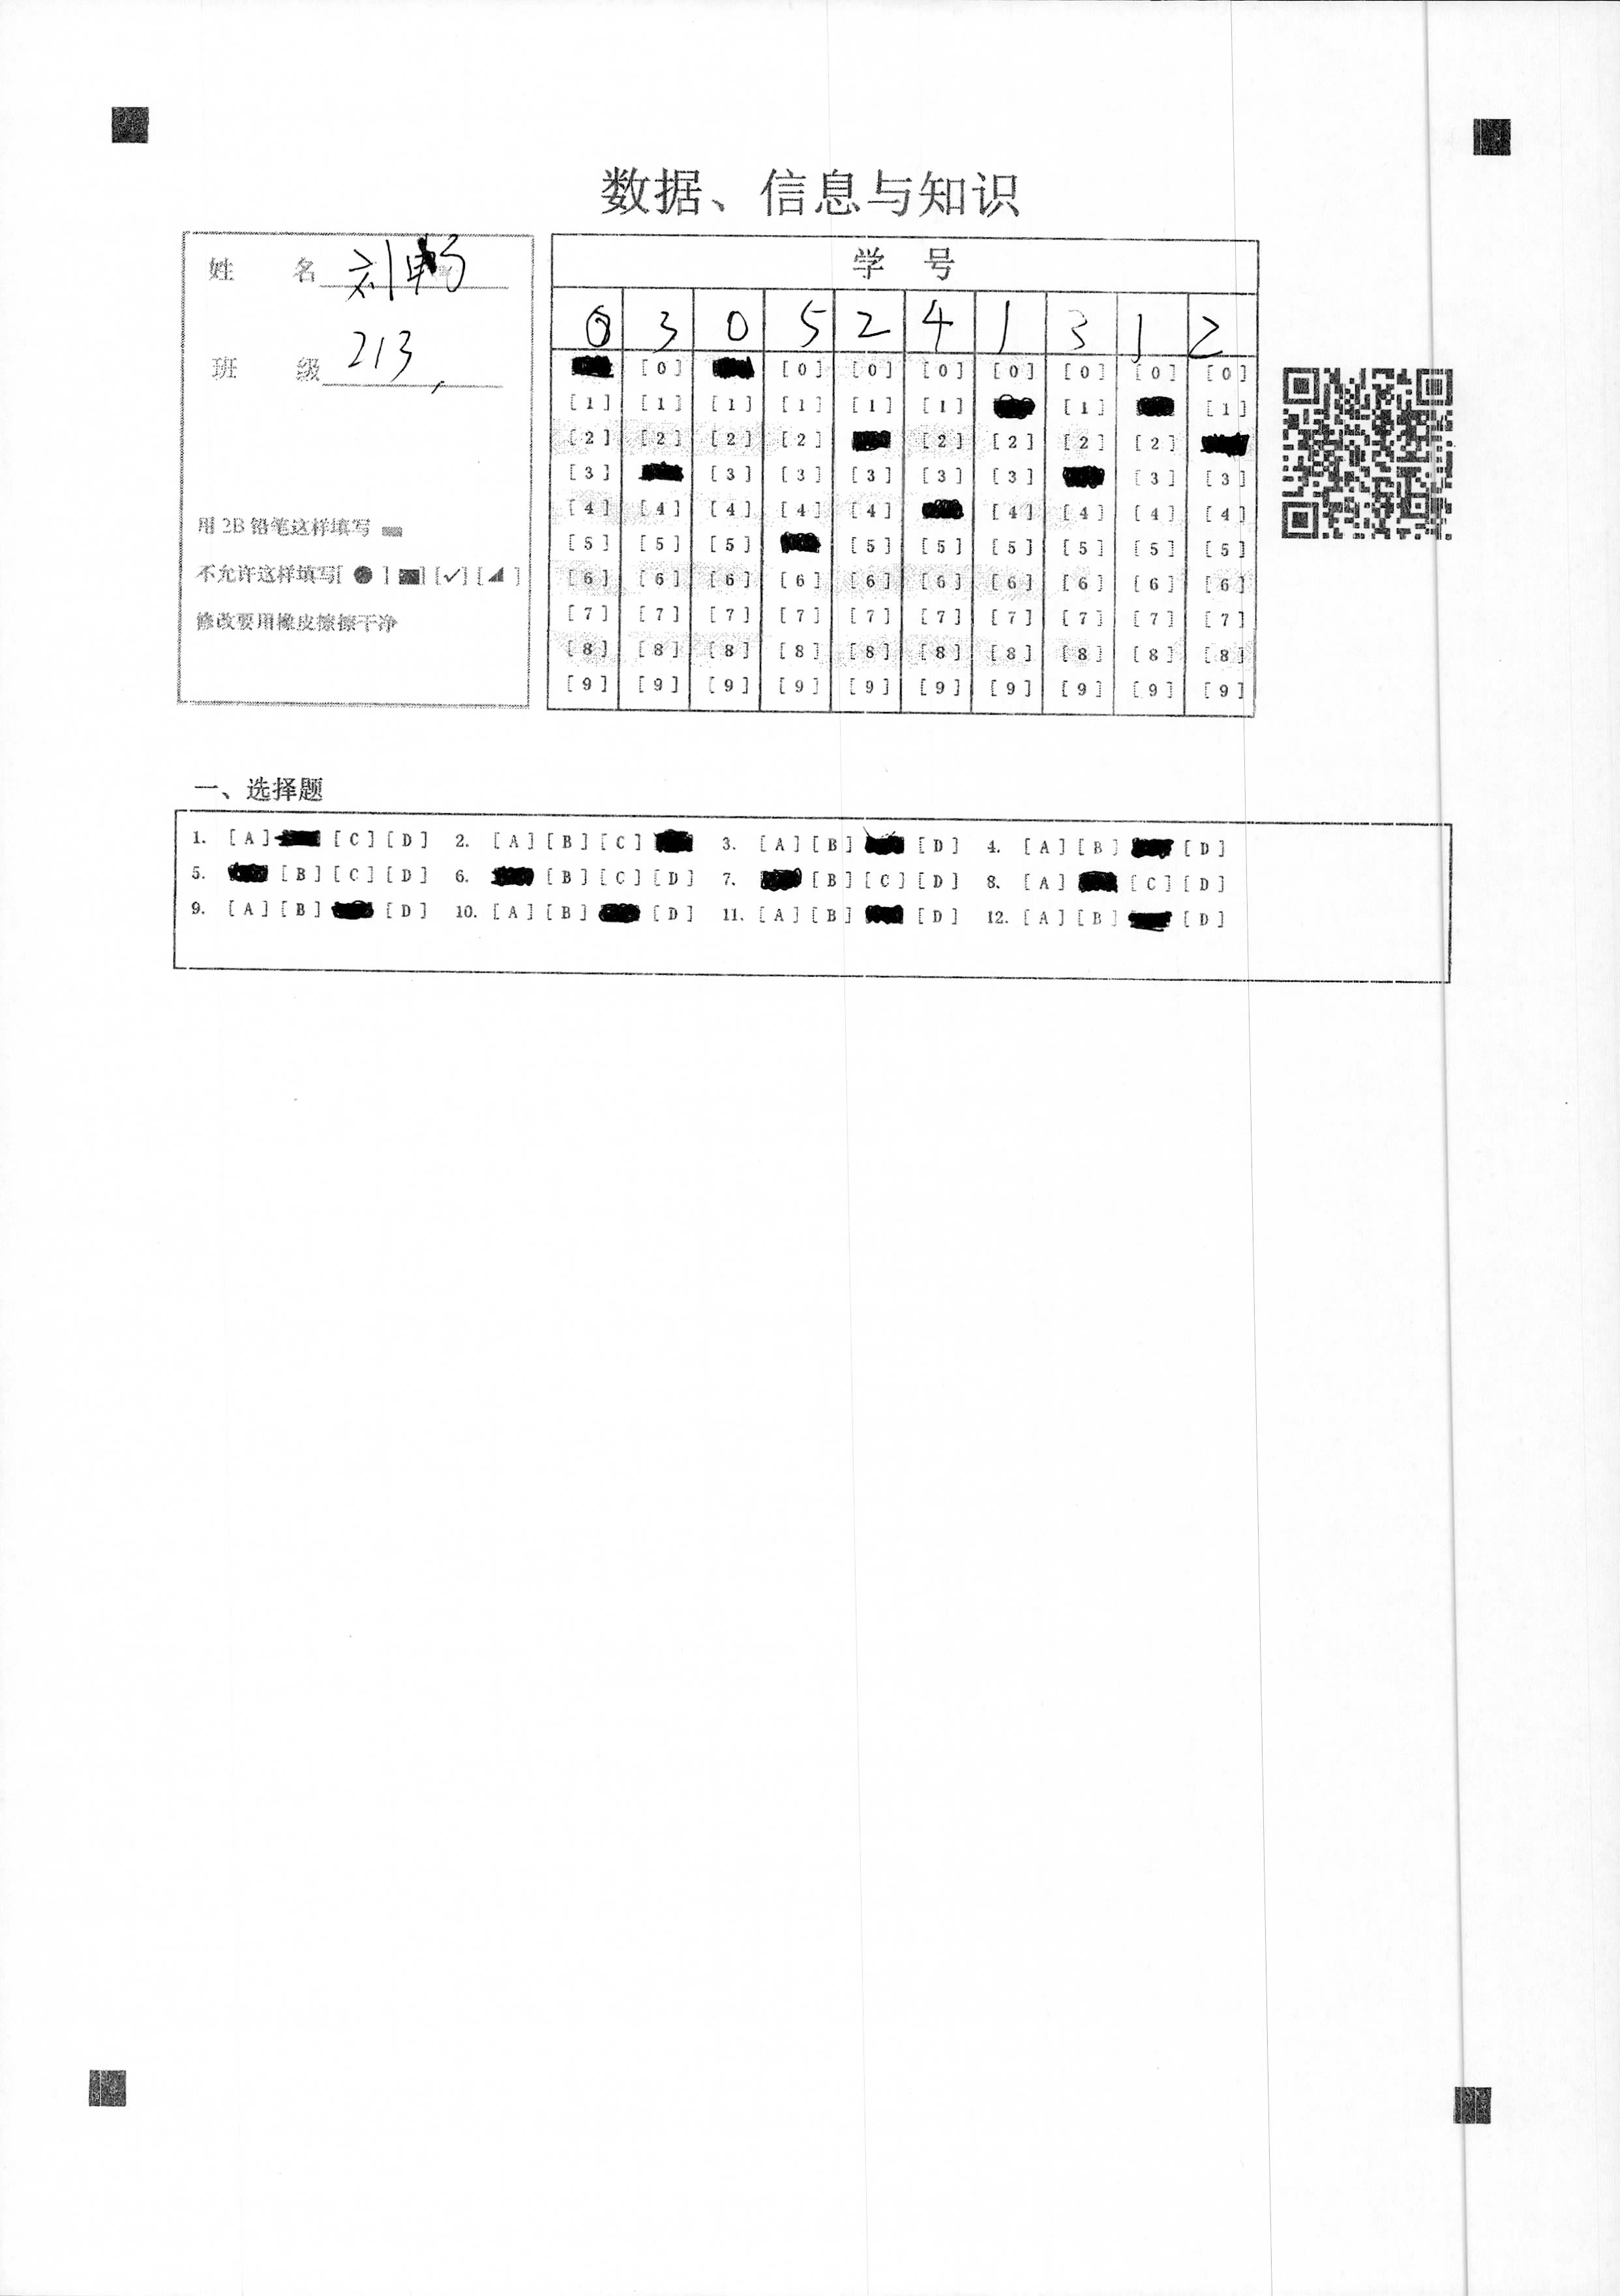 数据、信息与知识
姓 名 刘畅
班 级 213
用 2B 铅笔这样填写
不允许这样填写[ ● ] [■] [✓] [◢ ]
修改要用橡皮擦擦干净
学 号
0 3 0 5 2 4 1 3 1 2
[0] [0] [0] [0] [0] [0] [0] [0]
[1] [1] [1] [1] [1] [1] [1] [1]
[2] [2] [2] [2] [2] [2] [2] [2]
[3] [3] [3] [3] [3] [3] [3] [3]
[4] [4] [4] [4] [4] [4] [4] [4] [4]
[5] [5] [5] [5] [5] [5] [5] [5] [5]
[6] [6] [6] [6] [6] [6] [6] [6] [6] [6]
[7] [7] [7] [7] [7] [7] [7] [7] [7] [7]
[8] [8] [8] [8] [8] [8] [8] [8] [8] [8]
[9] [9] [9] [9] [9] [9] [9] [9] [9] [9]
一、选择题
1. [A] [C] [D] 2. [A] [B] [C] 3. [A] [B] [D] 4. [A] [B] [D]
5. [B] [C] [D] 6. [B] [C] [D] 7. [B] [C] [D] 8. [A] [C] [D]
9. [A] [B] [D] 10. [A] [B] [D] 11. [A] [B] [D] 12. [A] [B] [D]